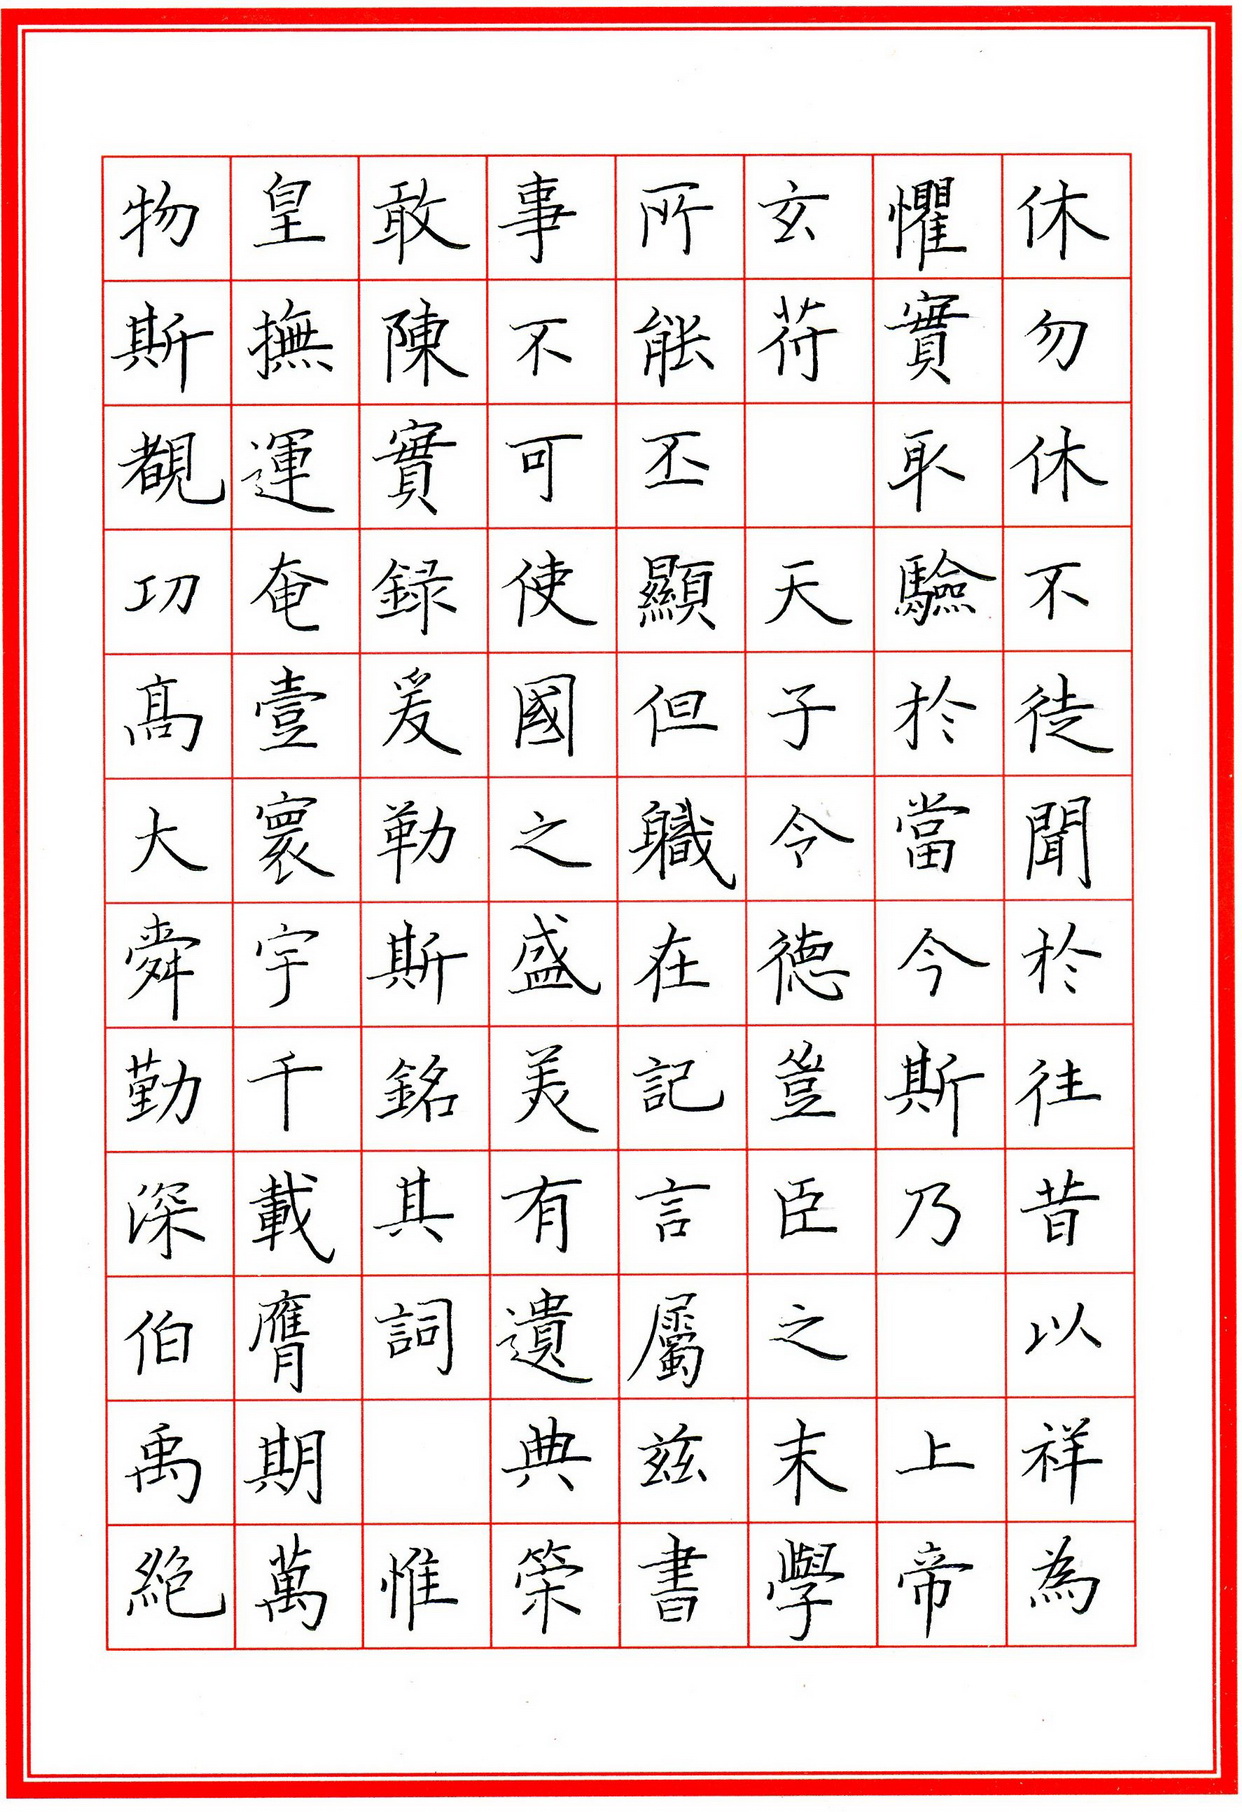 休勿休不徒聞於往昔以祥為
懼實取驗於當今斯乃 上帝
玄符 天子令德豈臣之末學
所能丕顯但職在記言屬茲書
事不可使國之盛美有遺典策
敢陳實録爰勒斯銘其詞 惟
皇撫運奄壹寰宇千載膺期萬
物斯覩功高大舜勤深伯禹絶